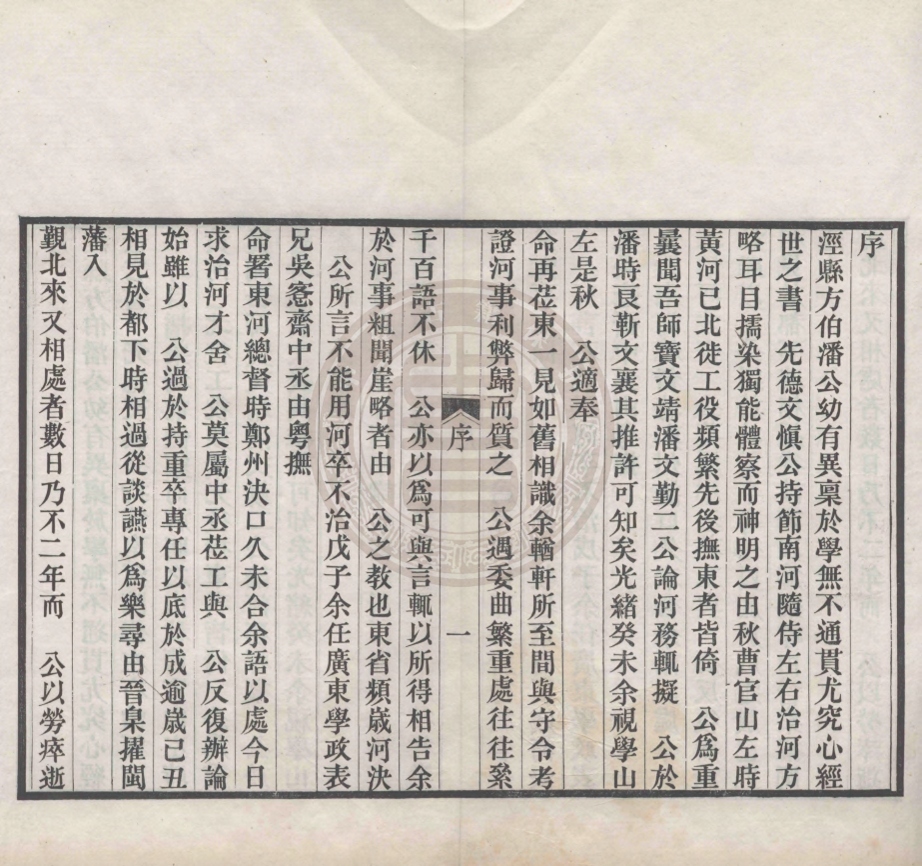 序
涇縣方伯潘公幼有異稟於學無不通貫尤究心經
世之書　先德文愼公持節南河隨侍左右治河方
略耳目擩染獨能體察而神明之由秋曹官山左時
黃河已北徙工役頻繁先後撫東者皆倚　公爲重
曩聞吾師寶文靖潘文勤二公論河務輒擬　公於
潘時良靳文襄其推許可知矣光緒癸未余視學山
左是秋　公適奉
命再莅東一見如舊相識余輶軒所至間與守令考
證河事利弊歸而質之　公遇委曲繁重處往往絫
千百語不休　公亦以爲可與言輒以所得相告余
於河事粗聞崖略者由　公之教也東省頻歲河決
　公所言不能用河卒不治戊子余任廣東學政表
兄吳愙齋中丞由粵撫
命署東河總督時鄭州決口久未合余語以處今日
求治河才舍　公莫屬中丞莅工與　公反復辦論
始雖以　公過於持重卒專任以底於成逾歲已丑
相見於都下時相過從談讌以爲樂尋由晉臬擢閩
藩入
覲北來又相處者數日乃不二年而　公以勞瘁逝
序
一